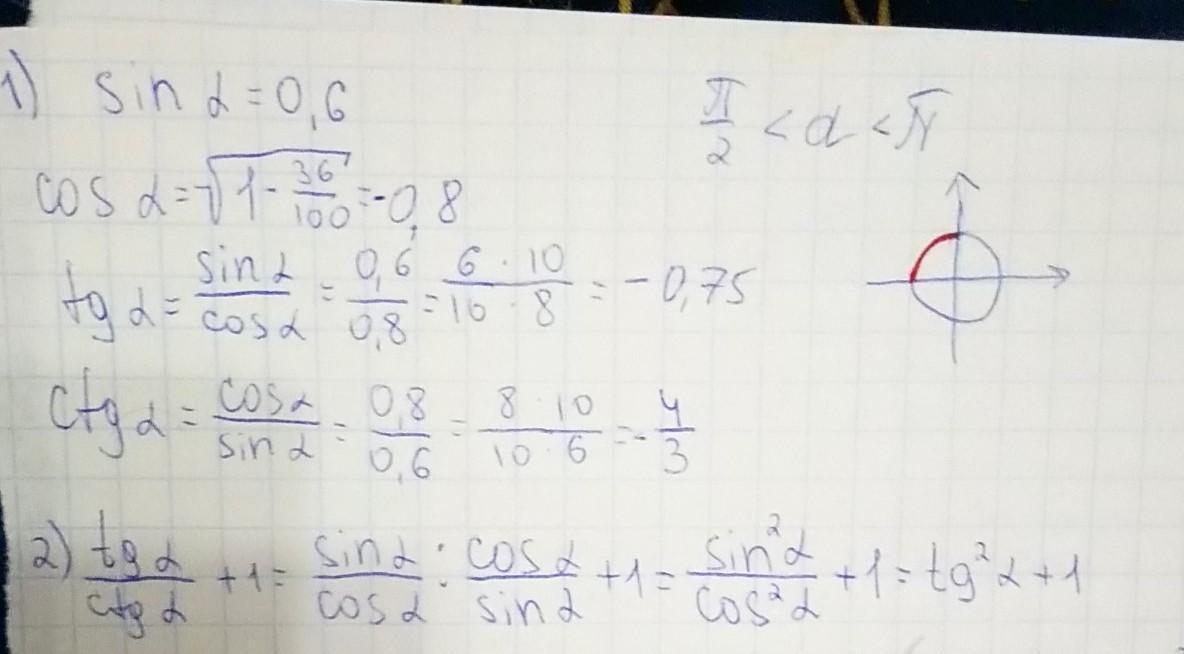 1) sin α = 0,6
π/2 < α < π
cos α = √(1 - 36/100) = -0,8
tg α = sin α/cos α = 0,6/0,8 = (6 · 10)/(10 · 8) = - 0,75
ctg α = cos α/sin α = 0,8/0,6 = (8 · 10)/(10 · 6) = - 4/3
2) tg α/ctg α + 1 = sin α/cos α : cos α/sin α + 1 = sin²α/cos²α + 1 = tg²α + 1